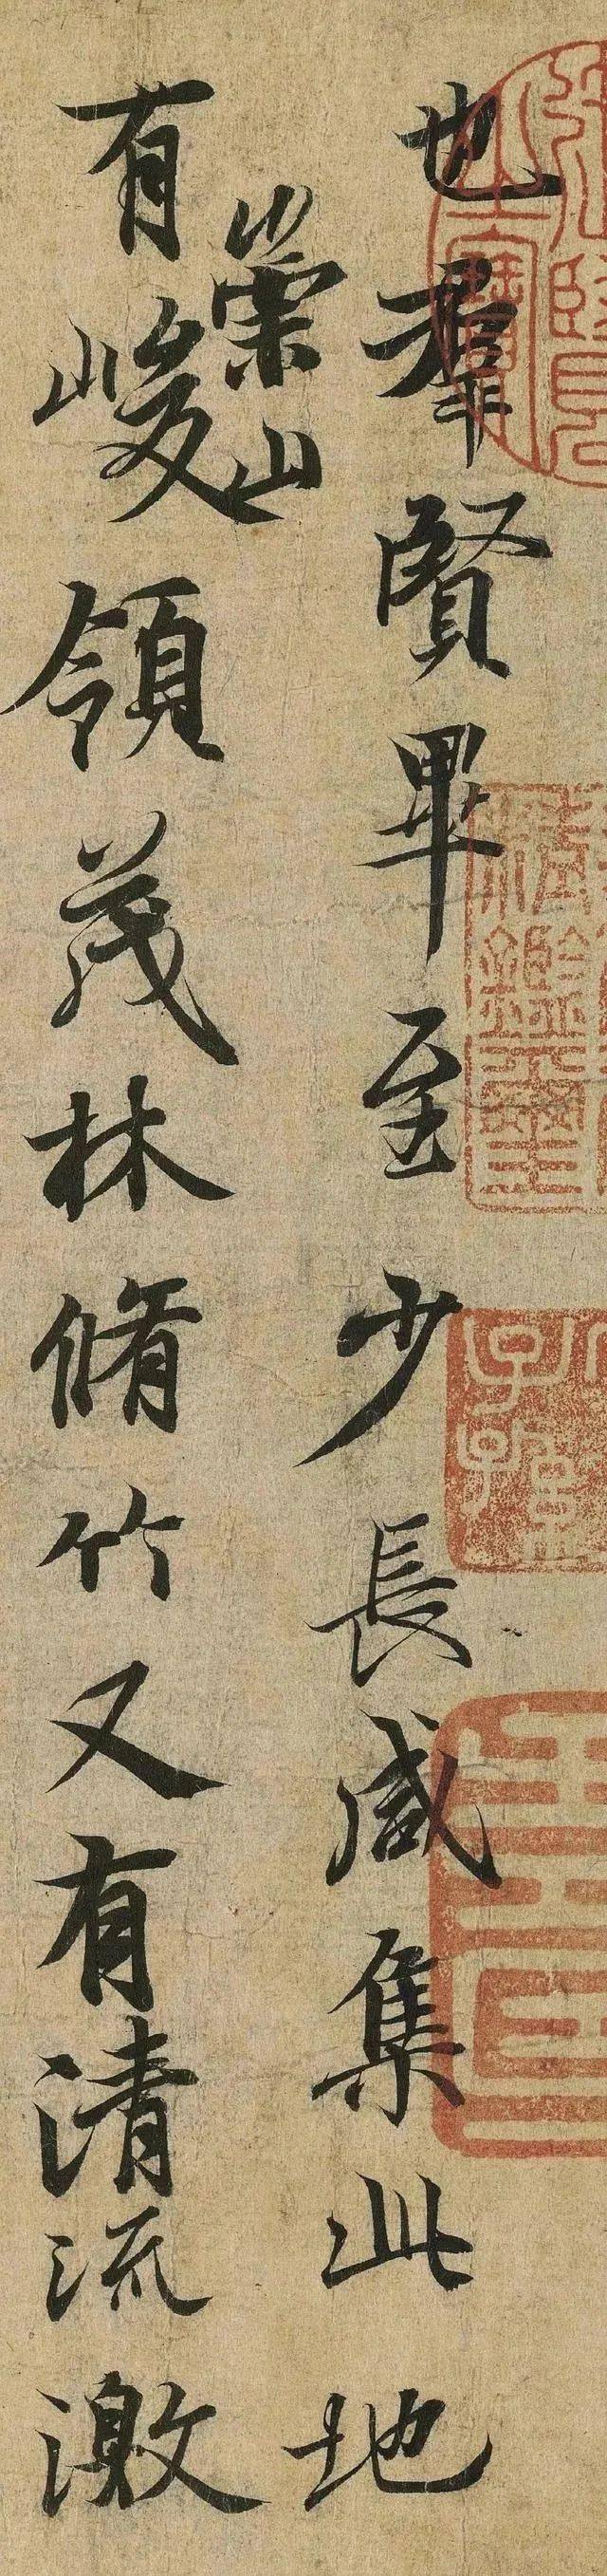 也羣賢畢至少長咸集此地
有崇山峻領茂林脩竹又有清流激